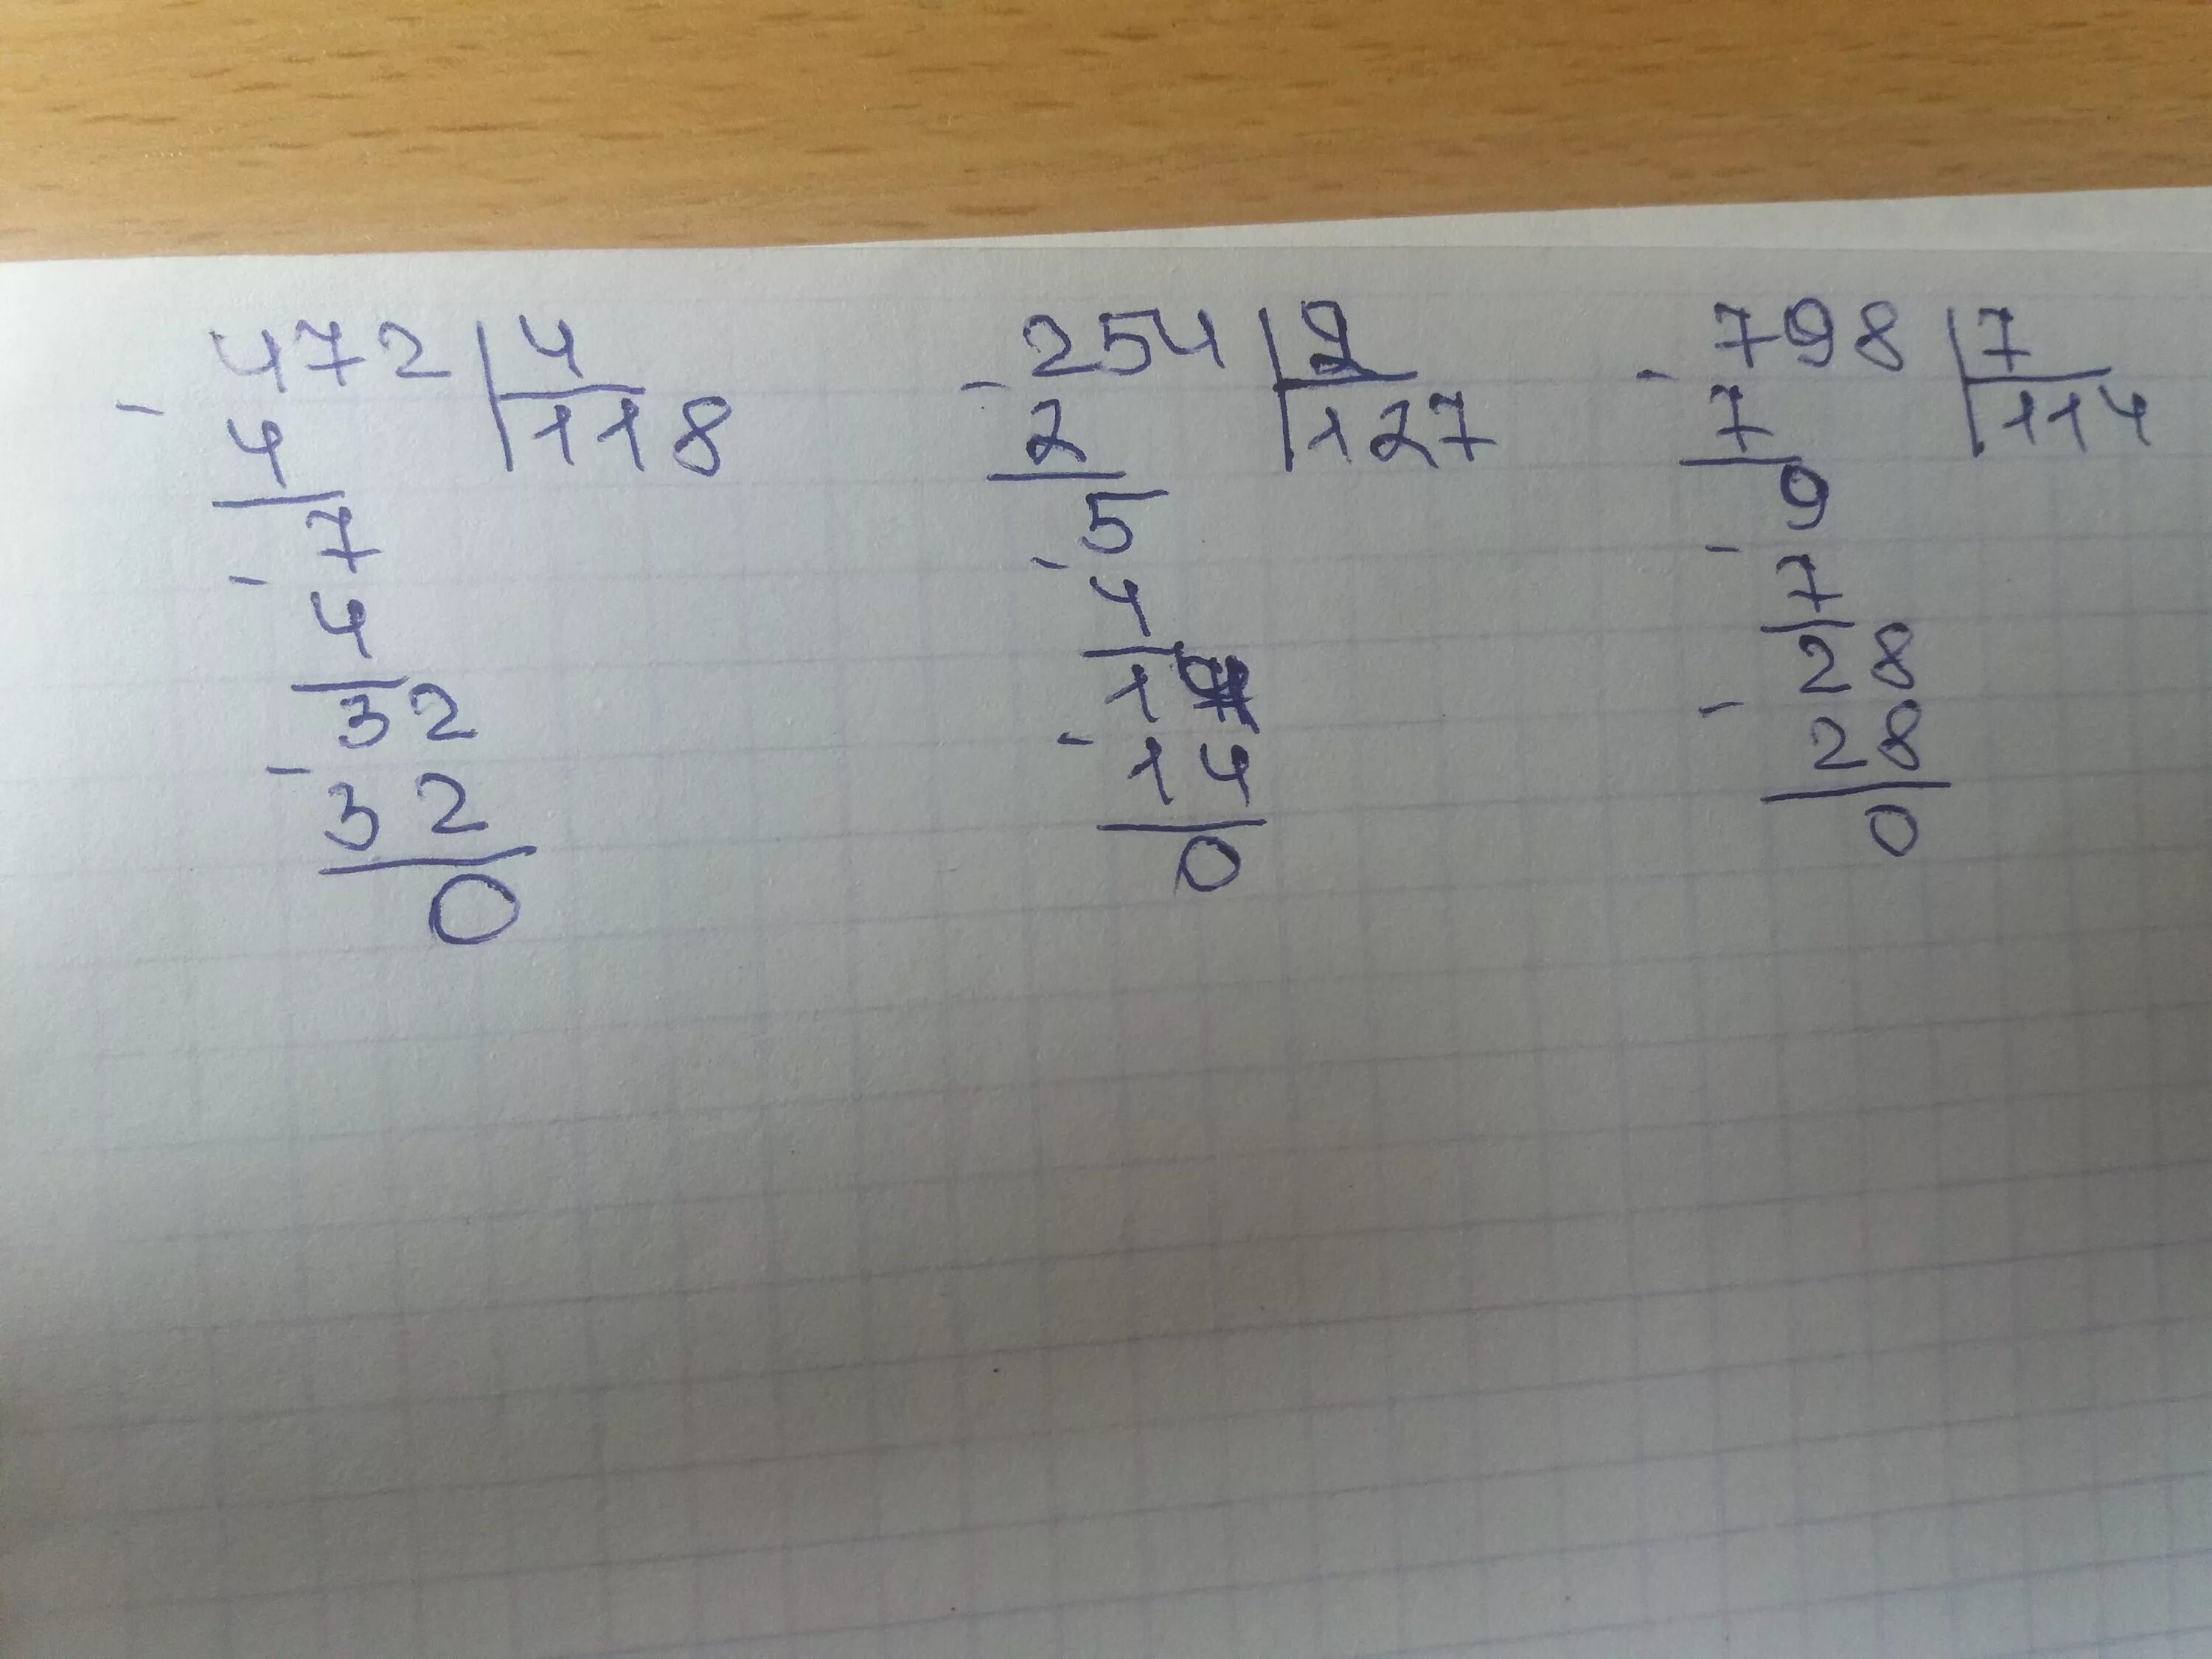 472 4
- 4 118
7
- 4
32
- 32
0
254 2
- 2 127
5
- 4
1
- 14
0
798 7
- 7 114
9
- 7
28
- 28
0